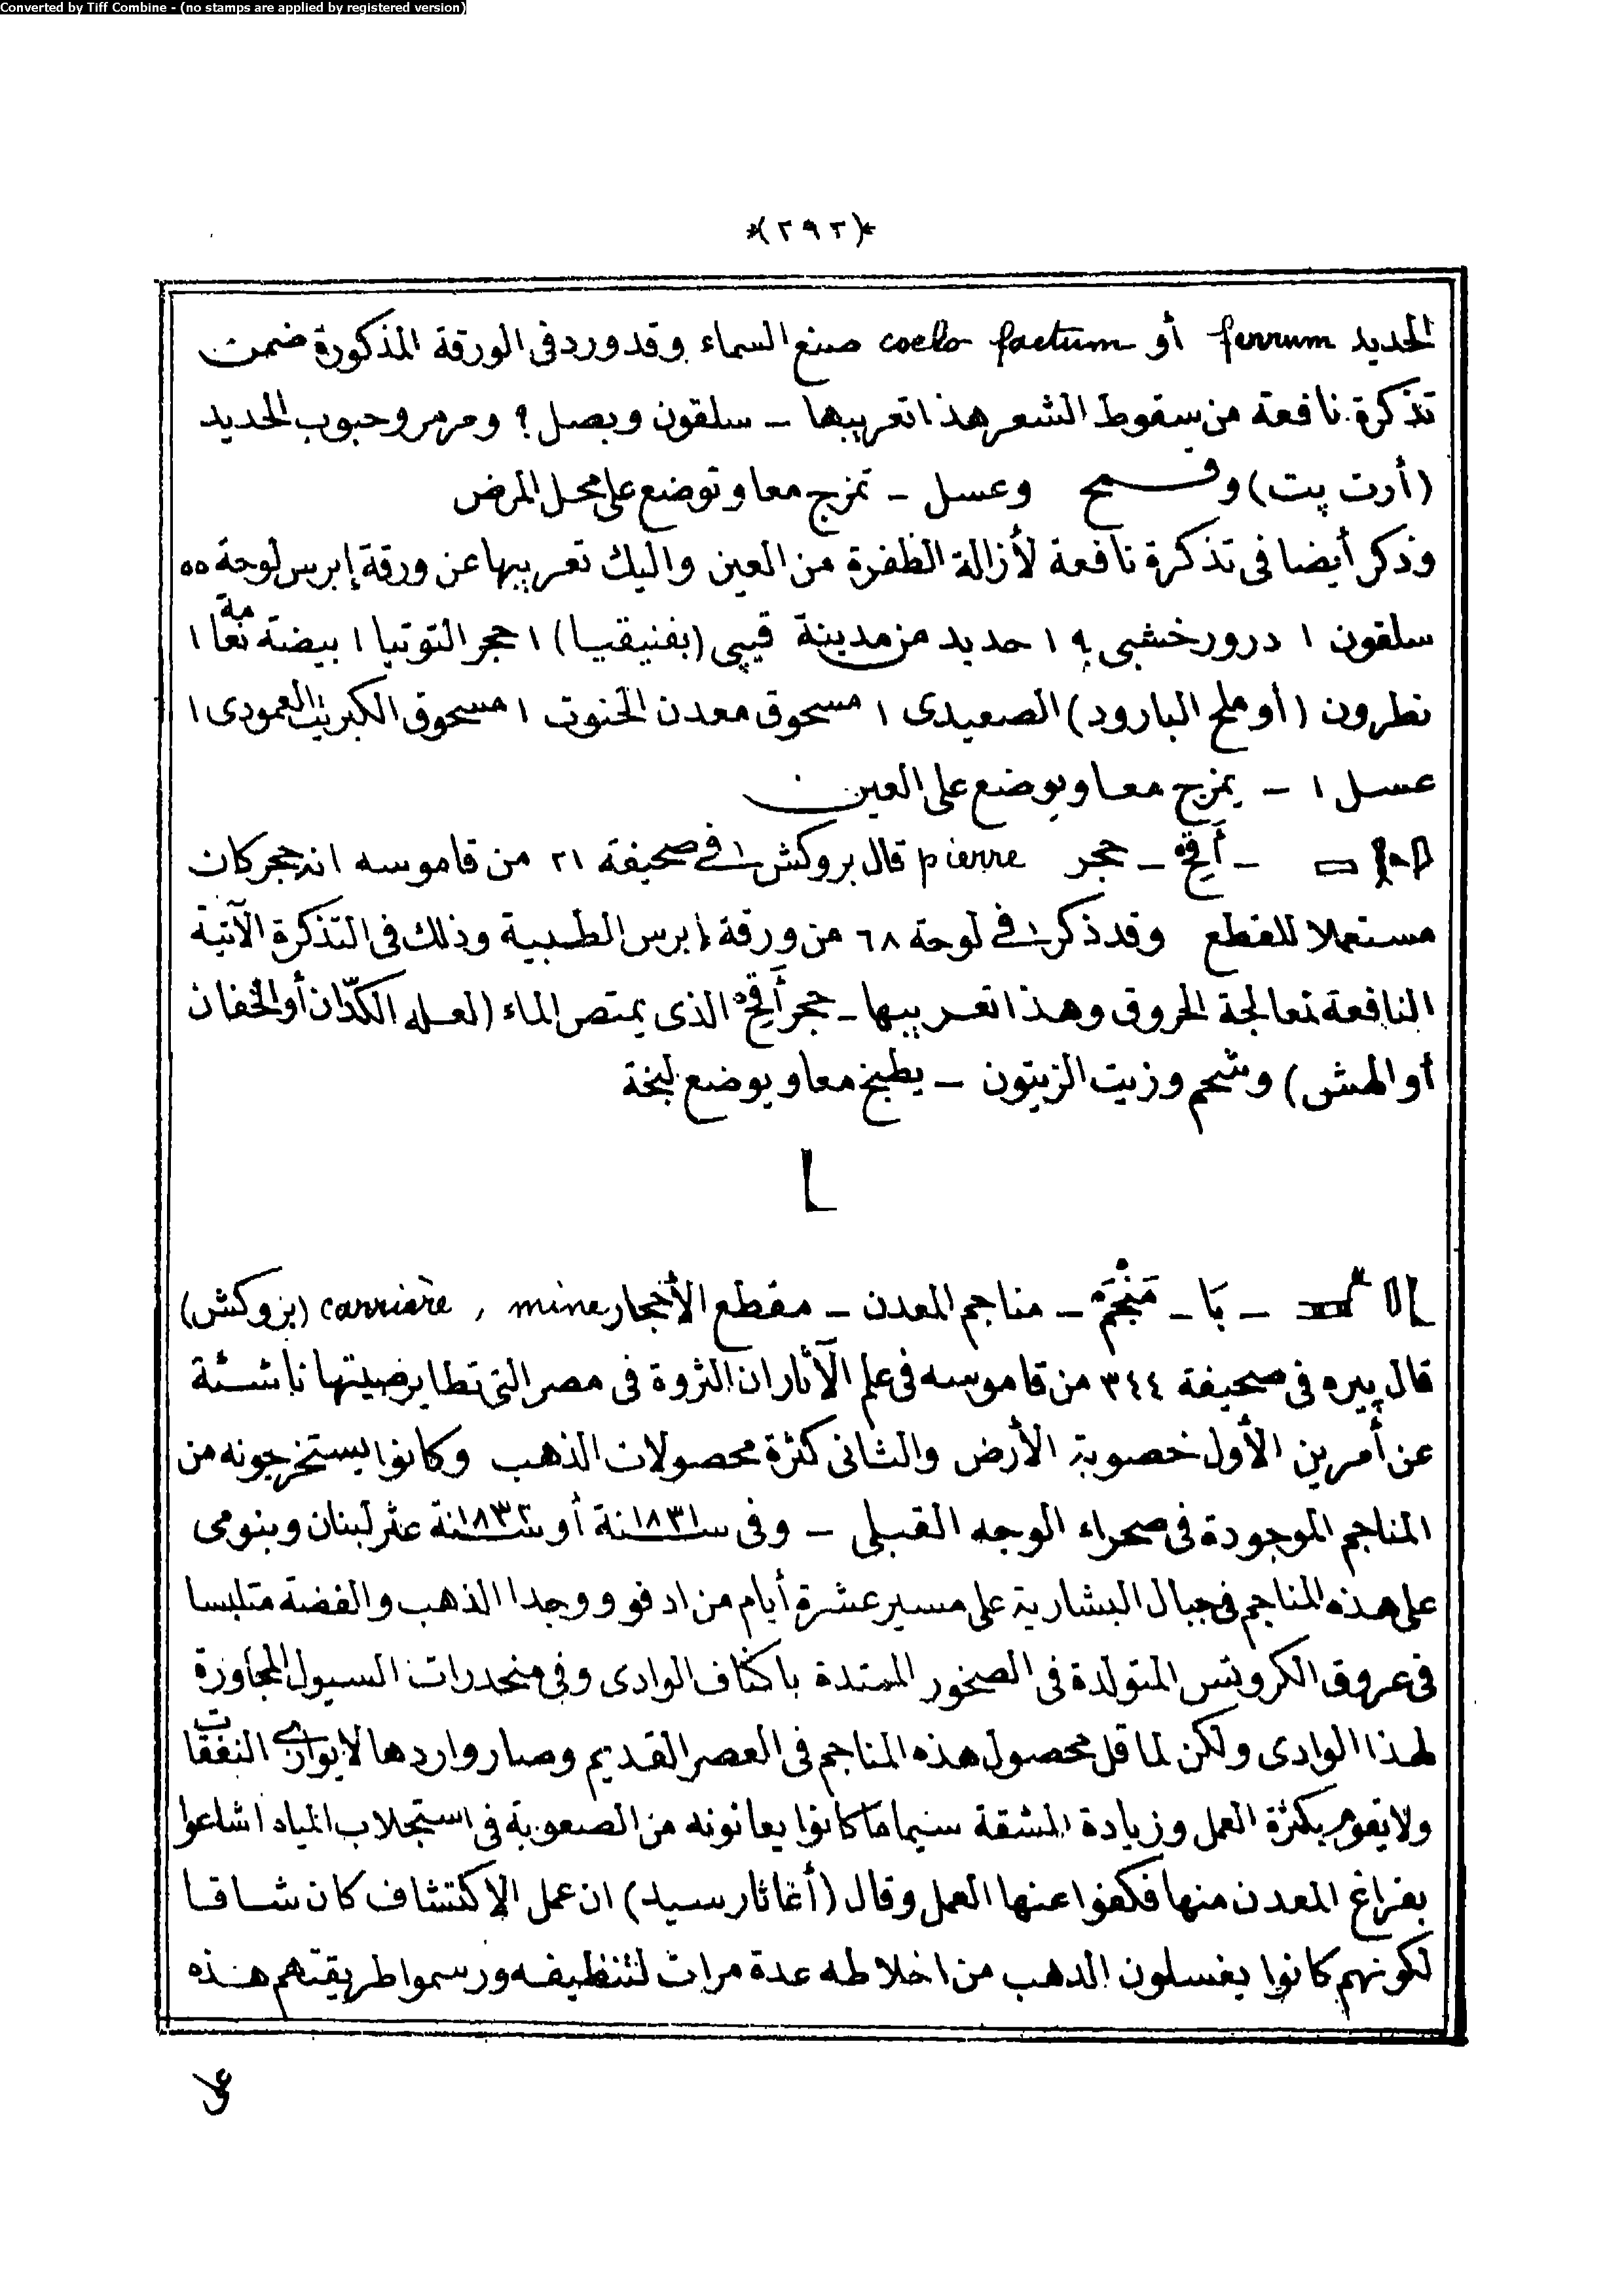 Converted by Tiff Combine - (no stamps are applied by registered version)
*(٢٩٢)*
الحديد ferrum أو coelo factum صنع السماء وقد ورد فى الورقة المذكورة ضمن
تذكرة نافعة من سقوط الشعر هذا تعريبها – سلقون وبصل ؟ ومرمر وحبوب الحديد
(أرت پت) وقمح وعسل – تمزج معا وتوضع على محل المرض
وذكر أيضا فى تذكرة نافعة لأزالة الظفرة من العين واليك تعريبها عن ورقة إبرس لوحة ٥٥
سلقون ١ درور خشبى ؟ ١ حديد من مدينة قيپى (بفنيقيا) ١ حجر التوتيا ١ بيضة نعامة ١
نطرون (أو ملح البارود) الصعيدى ١ مسحوق معدن الخنوت ١ مسحوق الكبريت العمودى ١
عسل ١ – يمزج معا ويوضع على العين
– أَقِحْ – حجر pierre قال بروكش فى صحيفة ٢١ من قاموسه انه حجر كان
مستعملا للقطع وقد ذكر فى لوحة ٦٨ من ورقة إبرس الطبية وذلك فى التذكرة الآتية
النافعة لمعالجة الحروق وهذا تعريبها – حجر أَقِحْ الذى يمتص الماء (لعله الكدّان أو الخفان
أو الهش) وشحم وزيت الزيتون – يطبخ معا ويوضع لبخة
– بَا – مَنْجَم – مناجم المعدن – مقطع الأحجار carrière , mine (بروكش)
قال پيره فى صحيفة ٣٤٤ من قاموسه فى علم الآثار ان الثروة فى مصر التى تطاير صيتها ناشئة
عن أمرين الأول خصوبة الأرض والثانى كثرة محصولات الذهب وكانوا يستخرجونه من
المناجم الموجودة فى صحراء الوجه القبلى – وفى سنة ١٨٣١ أو سنة ١٨٣٢ عثر لبنان وبنومى
على هذه المناجم فى جبال البشارية على مسير عشرة أيام من ادفو ووجدا الذهب والفضة متلبسا
فى عروق الكروتس المتولدة فى الصخور الممتدة باكناف الوادى وفى منحدرات السيول المجاورة
لهذا الوادى ولكن لما قل محصول هذه المناجم فى العصر القديم وصار واردها لا يوازى النفقات
ولا يقوم بكثرة العمل وزيادة المشقة سيما ما كانوا يعانونه من الصعوبة فى استجلاب المياه اشاعوا
بفراغ المعدن منها فكفوا عنها العمل وقال (أغاثارسيد) ان عمل الاكتشاف كان شاقا
لكونهم كانوا يغسلون الذهب من اخلاطه عدة مرات لتنظيفه ورسموا طريقتهم هذه
على